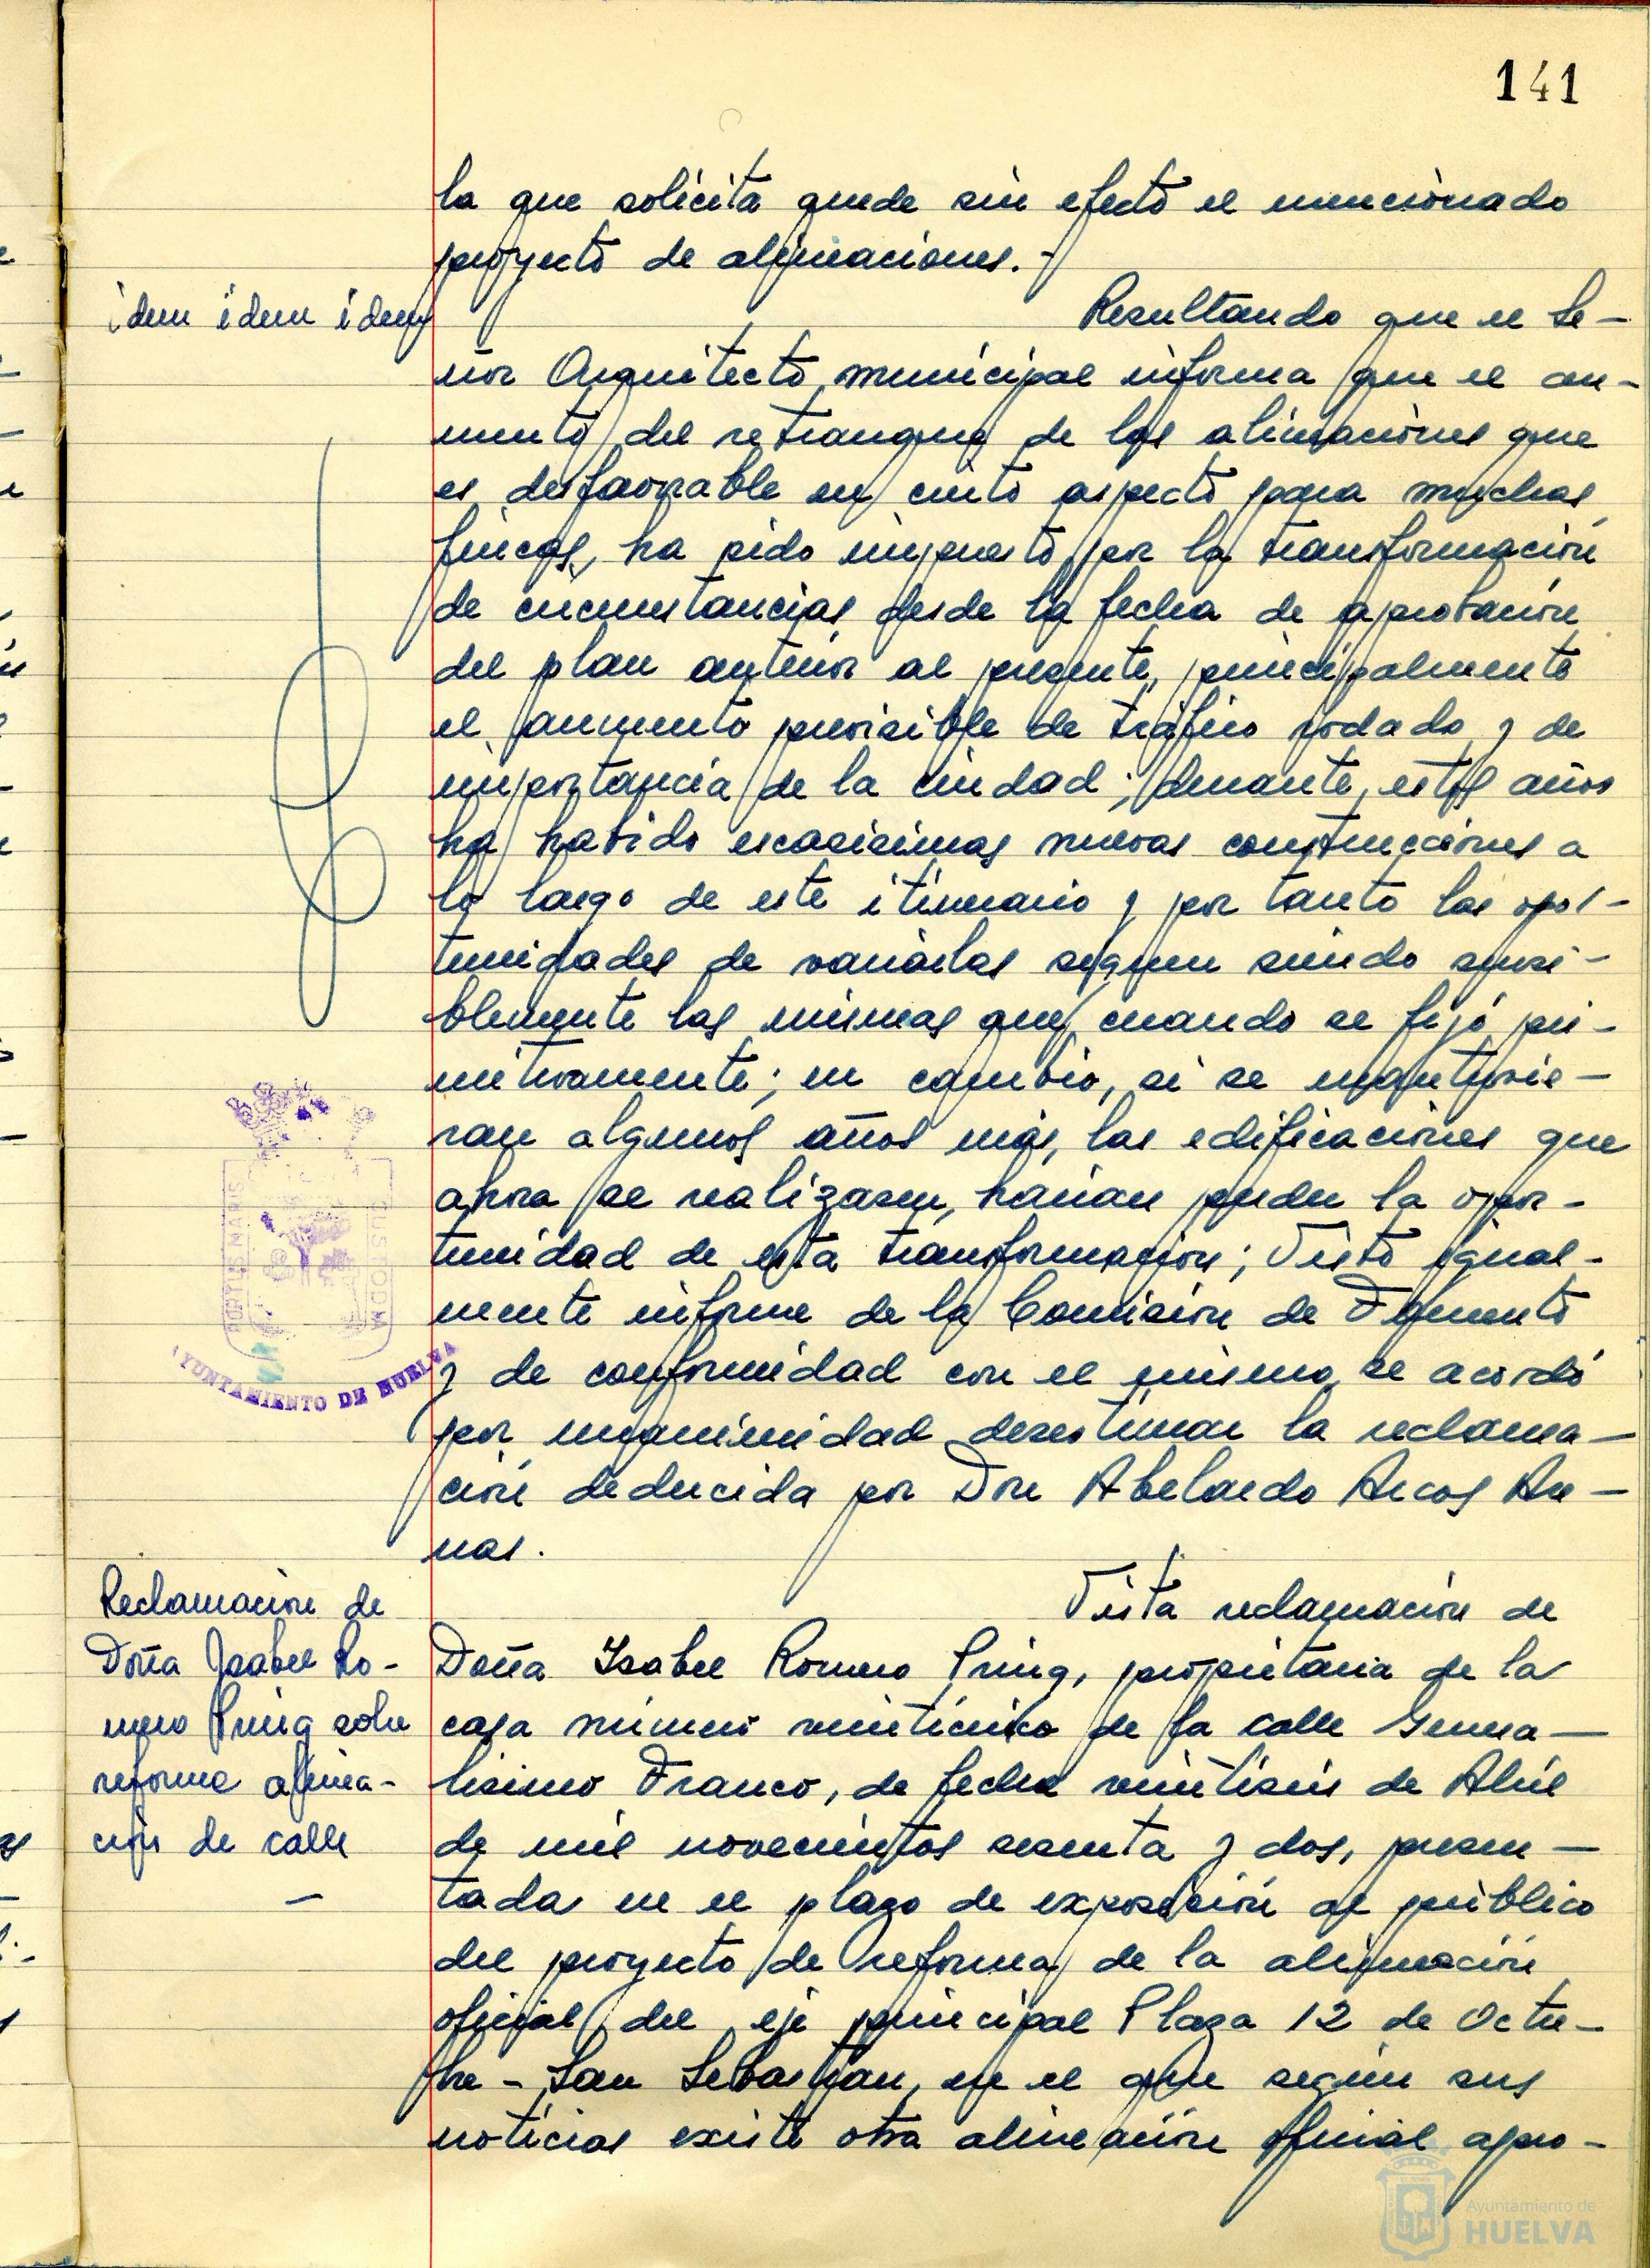 141
la que solicita quede sin efecto el mencionado
proyecto de alineaciones.-
idem idem idem
Resultando que el Se-
ñor Arquitecto municipal informa que el au-
mento del retranqueo de las alineaciones que
es desfavorable en cierto aspecto para muchas
fincas, ha sido impuesto por la transformación
de circunstancias desde la fecha de aprobación
del plan anterior al presente, principalmente
el aumento previsible de tráfico rodado y de
importancia de la ciudad; durante estos años
ha habido escasisimas nuevas construcciones a
lo largo de este itinerario y por tanto las opor-
tunidades de variarlas siguen siendo sensi-
blemente las mismas que cuando se fijó pri-
mitivamente; en cambio, si se mantuvie-
ran algunos años más, las edificaciones que
ahora se realizasen, harian perder la opor-
tunidad de esta transformación; Visto igual-
mente informe de la Comisión de Fomento
y de conformidad con el mismo se acordó
por unanimidad desestimar la reclama-
ción deducida por Don Abelardo Arcos Are-
nas.
PORTUS MARIS
CUSTODIA
AYUNTAMIENTO DE HUELVA
Reclamación de
Doña Isabel Ro-
mero Puig sobre
reforma alinea-
ción de calle
Vista reclamación de
Doña Isabel Romero Puig, propietaria de la
casa número veinticinco de la calle Genera-
lisimo Franco, de fecha veintiseis de Abril
de mil novecientos sesenta y dos, presen-
tada en el plazo de exposición al público
del proyecto de reforma de la alineación
oficial del eje principal Plaza 12 de Octu-
bre - San Sebastian, en el que según sus
noticias existe otra alineación oficial apro-
Ayuntamiento de
HUELVA